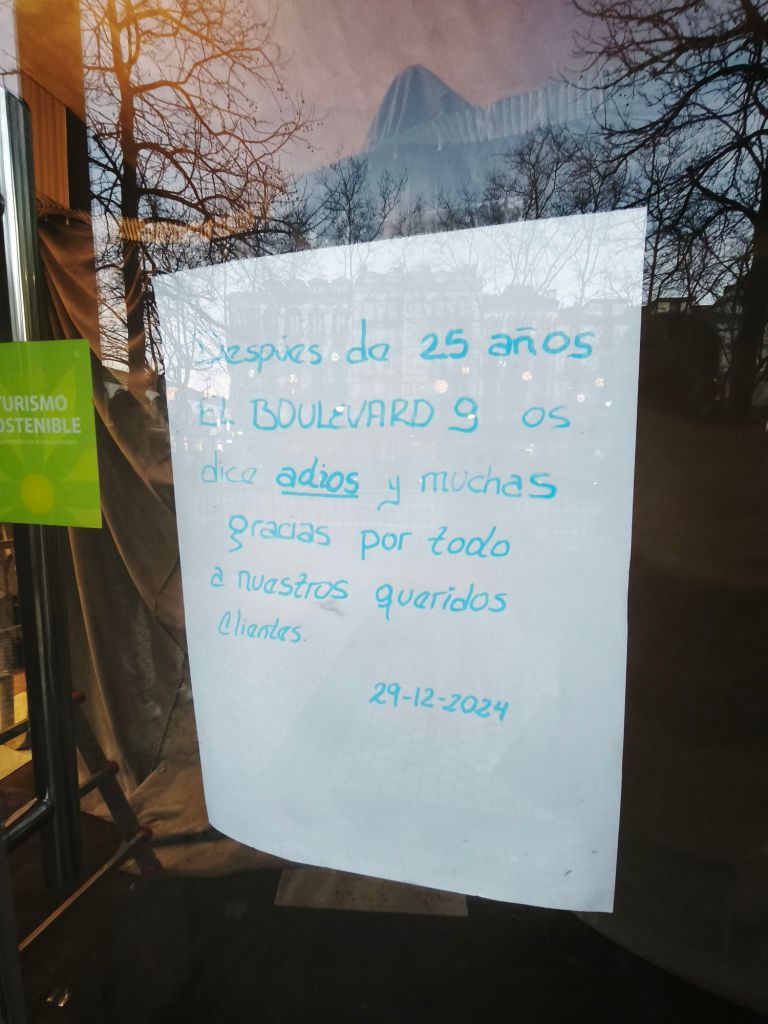 Despúes de 25 años
EL BOULEVARD 9 os
dice adios y muchas
gracias por todo
a nuestros queridos
clientes.
29-12-2024
TURISMO
OSTENIBLE